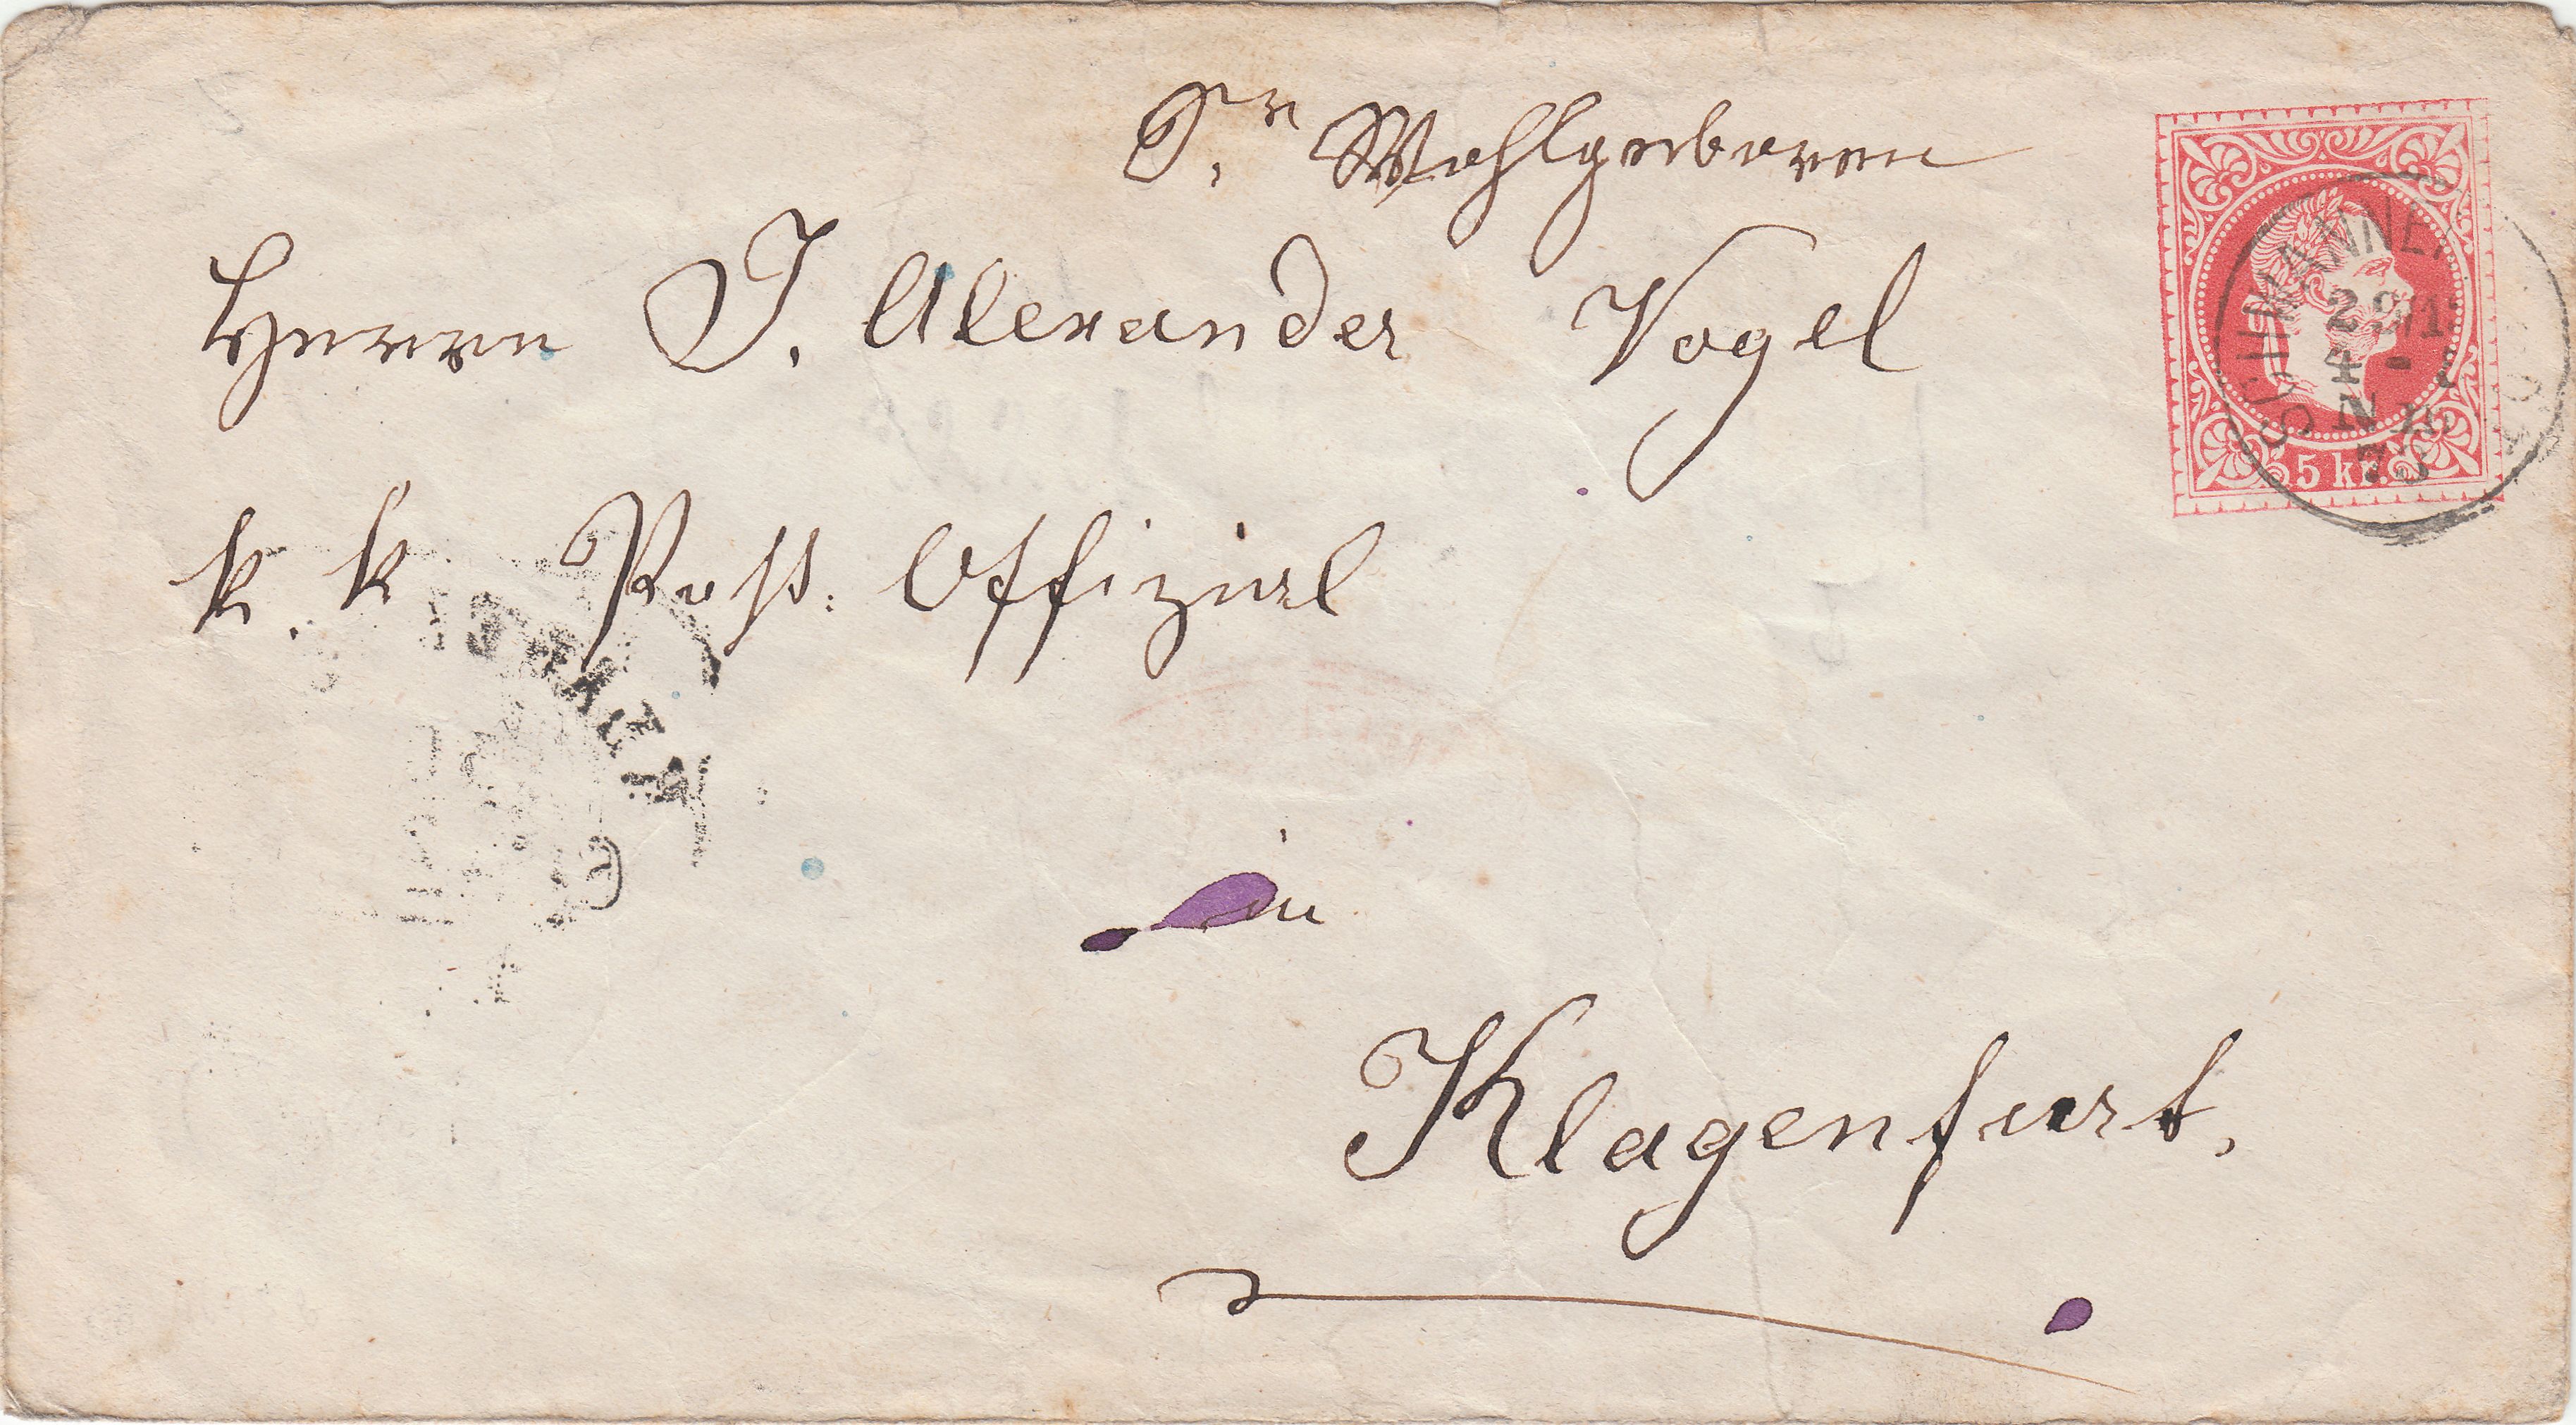 Sr. Wohlgeboren
Herrn J. Alexander Vogel
k. k. Post. Offizial
in
Klagenfurt.
5 kr.
73